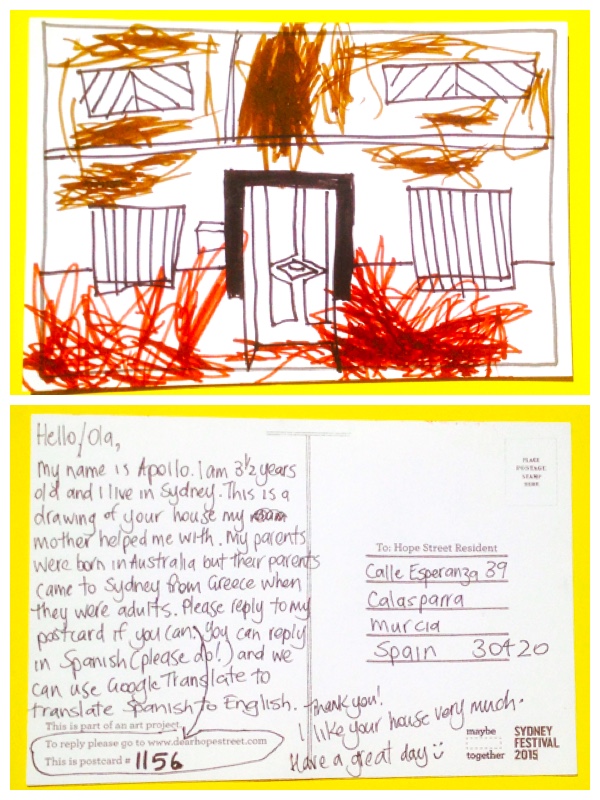 Hello/Ola,
My name is Apollo. I am 3½ years
old and I live in Sydney. This is a
drawing of your house my
mother helped me with. My parents
were born in Australia but their parents
came to Sydney from Greece when
they were adults. Please reply to my
postcard if you can. You can reply
in Spanish (please do!) and we
can use Google Translate to
translate Spanish to English.
Thank you!
I like your house very much.
Have a great day
This is part of an art project.
To reply please go to www.dearhopestreet.com
This is postcard # 1156
PLACE
POSTAGE
STAMP
HERE
To: Hope Street Resident
Calle Esperanza 39
Calasparra
Murcia
Spain 30420
maybe
together
SYDNEY
FESTIVAL
2015